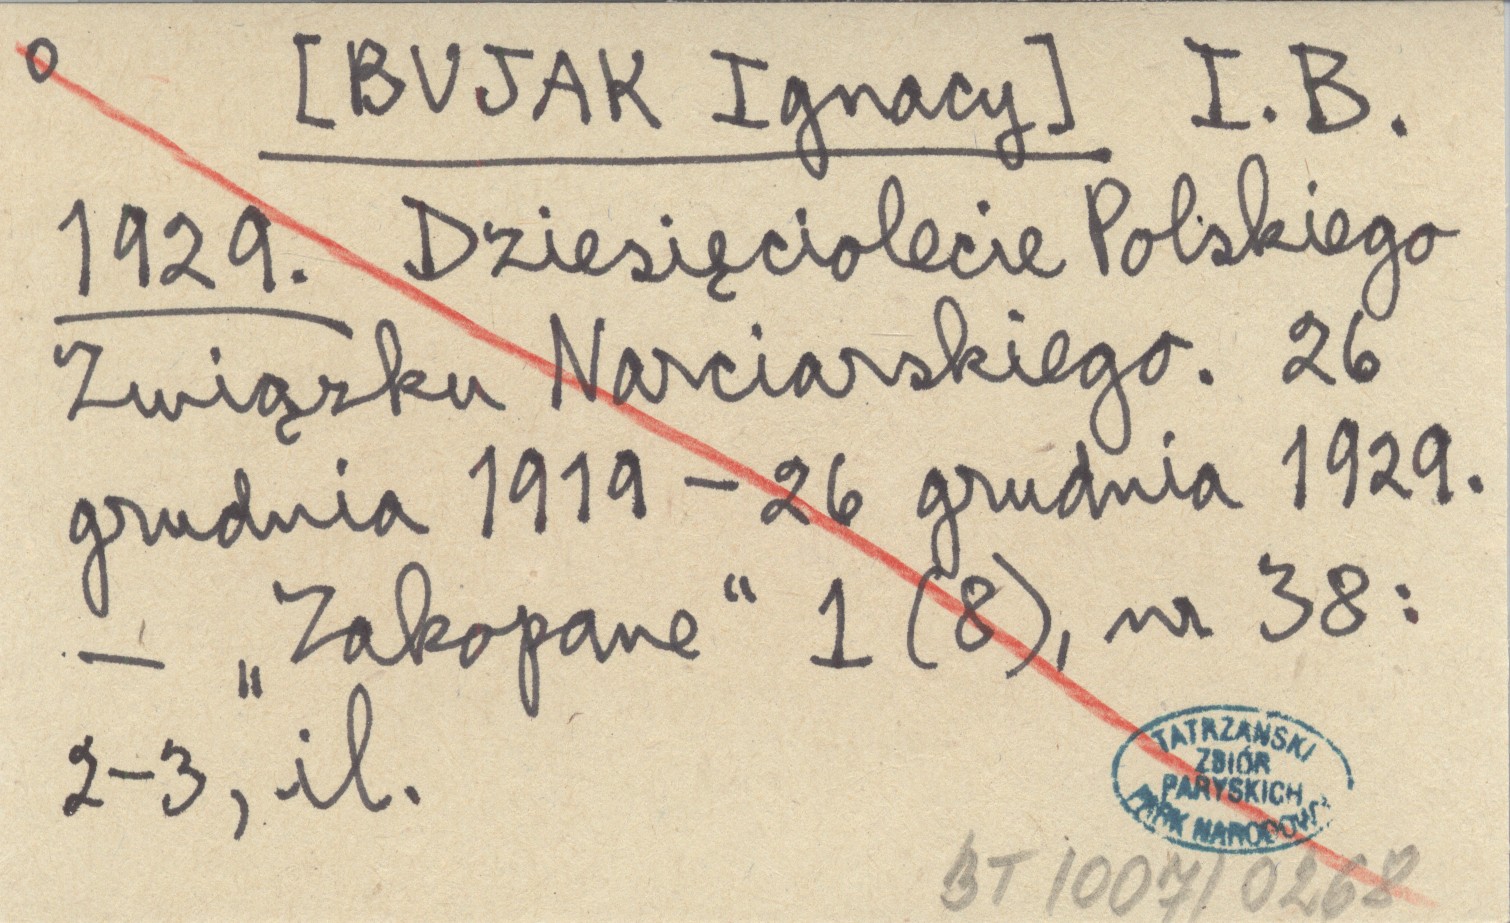 o [BUJAK Ignacy] I. B.
1929. Dziesięciolecie Polskiego
Związku Narciarskiego. 26
grudnia 1919 – 26 grudnia 1929.
— „Zakopane“ 1 (8), nr 38:
2–3, il.
TATRZAŃSKI
ZBIÓR
PARYSKICH
PARK NARODOWY
BT 1007/0268